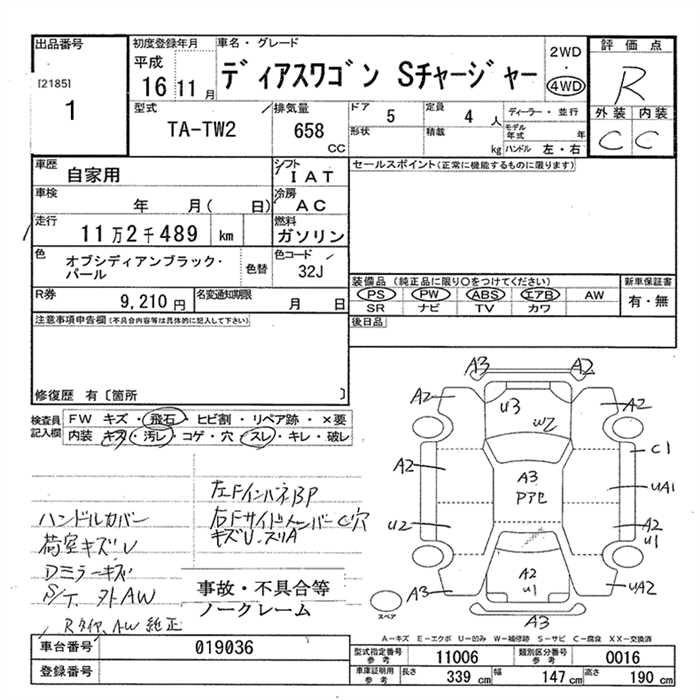 出品番号
[2185]
1
初度登録年月
平成
16 11月
車名・グレード
ディアスワゴン Sチャージャー
2WD
・
4WD
評価点
R
外装 内装
C C
型式
TA-TW2
排気量
658
CC
ドア
5
定員
4 人
ディーラー・並行
形状
積載
kg
モデル年式 年
ハンドル 左・右
車歴
自家用
シフト
IAT
セールスポイント(正常に機能するものに限ります)
車検
年 月( 日)
冷房
AC
走行
11万2千489 km
燃料
ガソリン
色
オブシディアンブラック・
パール
色替
色コード
32J
R券
9,210円
名変通知期限
月 日
装備品 (純正品に限り○をつけてください)
PS PW ABS エアB AW
SR ナビ TV カワ
新車保証書
有・無
注意事項申告欄(不具合内容等は具体的に記入して下さい)
後日品
修復歴 有〔箇所 〕
検査員
記入欄
FW キズ・飛石・ヒビ割・リペア跡・×要
内装 キズ・汚レ・コゲ・穴・スレ・キレ・破レ
左FインパネBP
右Fサイドメンバー C穴
キズU.スリA
ハンドルカバー
荷室キズU
Dミラーキズ
S/T. 外AW
RタイヤAW 純正
事故・不具合等
ノークレーム
A3 A2
A2 U3 W2 A2
A2 A3 C1
Pアセ UA1
U2 A2
U1
A3 A2 UA2
U1
A3
スペア
A−キズ E−エクボ U−凹み W−補修跡 S−サビ C−腐食 XX−交換済
車台番号
019036
登録番号
型式指定番号
参考
11006
類別区分番号
参考
0016
車庫証明用
参考
長さ 339 cm 幅 147 cm 高さ 190 cm